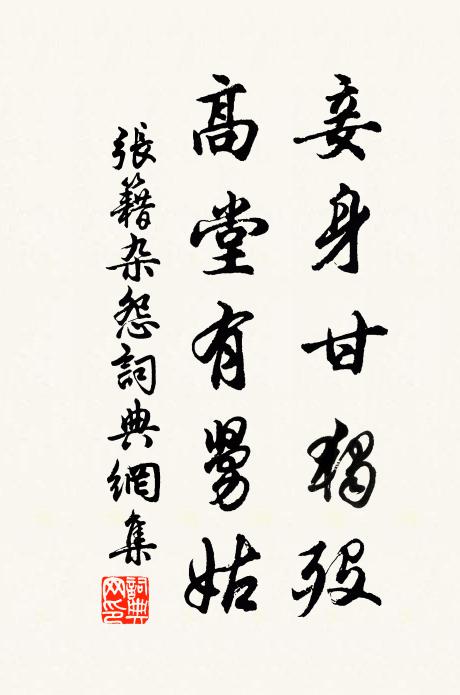 妾身甘獨歿
高堂有舅姑
張籍雜怨詞典網集
詞典网印